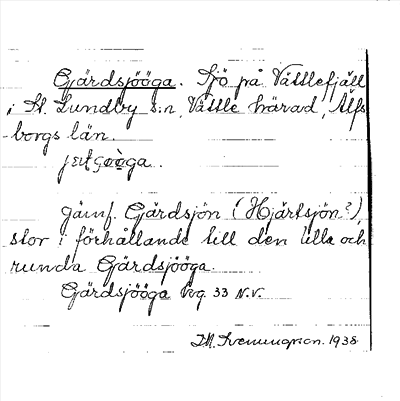 Gärdsjööga. Sjö på Vättlefjäll
i St. Lundby s:n, Vättle härad, Älfs-
borgs län.
jämf. Gärdsjön (Hjärtsjön?),
stor i förhållande till den lilla och
runda Gärdsjööga.
Gärdsjööga kg. 33 N.V.
1938